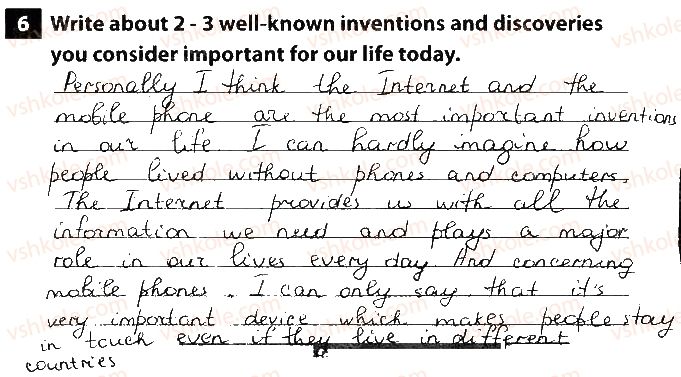 6 Write about 2 - 3 well-known inventions and discoveries
you consider important for our life today.
Personally I think the Internet and the
mobile phone are the most important inventions
in our life I can hardly imagine how
people lived without phones and computers.
The Internet provides us with all the
information we need and plays a major
role in our lives every day. And concerning
mobile phones. I can only say that it's
very important device which makes people stay
in touch even if they live in different
countries